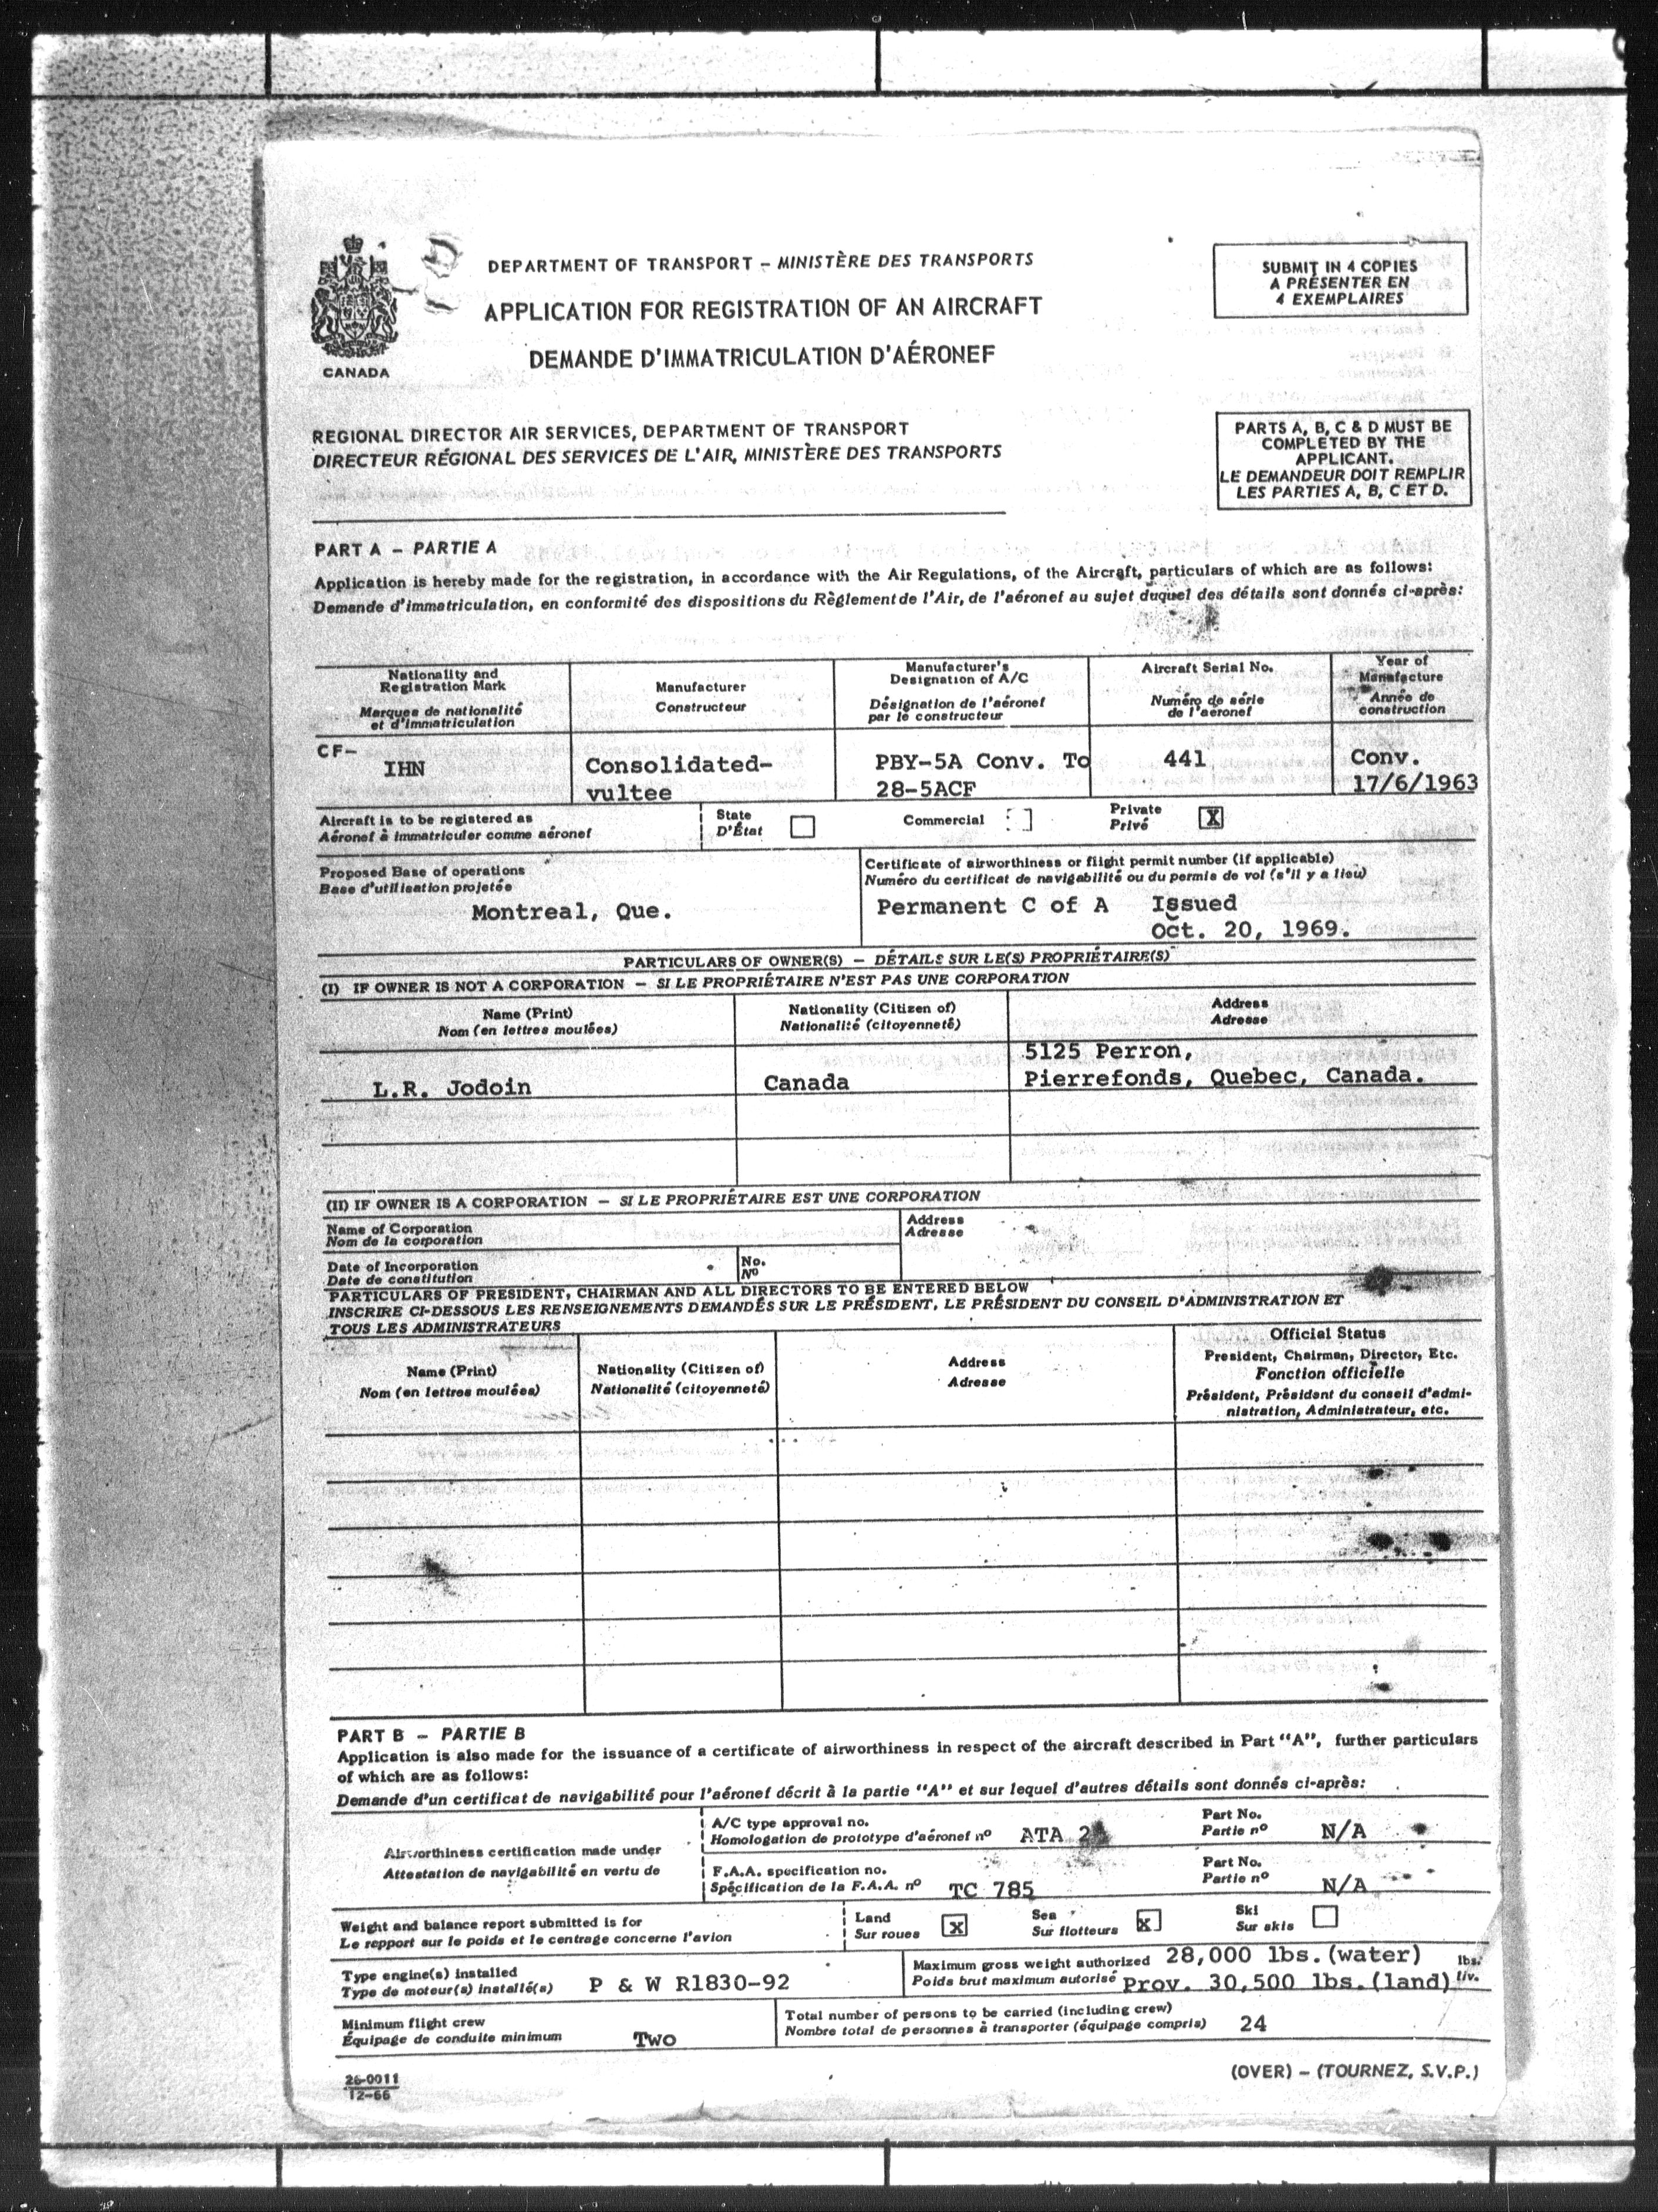 DEPARTMENT OF TRANSPORT – MINISTÈRE DES TRANSPORTS
APPLICATION FOR REGISTRATION OF AN AIRCRAFT
DEMANDE D'IMMATRICULATION D'AÉRONEF
CANADA
SUBMIT IN 4 COPIES
A PRÉSENTER EN
4 EXEMPLAIRES
REGIONAL DIRECTOR AIR SERVICES, DEPARTMENT OF TRANSPORT
DIRECTEUR RÉGIONAL DES SERVICES DE L'AIR, MINISTÈRE DES TRANSPORTS
PARTS A, B, C & D MUST BE
COMPLETED BY THE
APPLICANT.
LE DEMANDEUR DOIT REMPLIR
LES PARTIES A, B, C ET D.
PART A – PARTIE A
Application is hereby made for the registration, in accordance with the Air Regulations, of the Aircraft, particulars of which are as follows:
Demande d'immatriculation, en conformité des dispositions du Règlement de l'Air, de l'aéronef au sujet duquel des détails sont donnés ci-après:
Nationality and
Registration Mark
Marques de nationalité
et d'immatriculation
Manufacturer
Constructeur
Manufacturer's
Designation of A/C
Désignation de l'aéronef
par le constructeur
Aircraft Serial No.
Numéro de série
de l'aéronef
Year of
Manufacture
Année de
construction
CF–
IHN
Consolidated-
vultee
PBY-5A Conv. To
28-5ACF
441
Conv.
17/6/1963
Aircraft is to be registered as
Aéronef à immatriculer comme aéronef
State
D'État
Commercial
Private
Privé
X
Proposed Base of operations
Base d'utilisation projetée
Montreal, Que.
Certificate of airworthiness or flight permit number (if applicable)
Numéro du certificat de navigabilité ou du permis de vol (s'il y a lieu)
Permanent C of A Issued
Oct. 20, 1969.
PARTICULARS OF OWNER(S) – DÉTAILS SUR LE(S) PROPRIÉTAIRE(S)
(I) IF OWNER IS NOT A CORPORATION – SI LE PROPRIÉTAIRE N'EST PAS UNE CORPORATION
Name (Print)
Nom (en lettres moulées)
Nationality (Citizen of)
Nationalité (citoyenneté)
Address
Adresse
L.R. Jodoin
Canada
5125 Perron,
Pierrefonds, Quebec, Canada.
(II) IF OWNER IS A CORPORATION – SI LE PROPRIÉTAIRE EST UNE CORPORATION
Name of Corporation
Nom de la corporation
Address
Adresse
Date of Incorporation
Date de constitution
No.
Nº
PARTICULARS OF PRESIDENT, CHAIRMAN AND ALL DIRECTORS TO BE ENTERED BELOW
INSCRIRE CI-DESSOUS LES RENSEIGNEMENTS DEMANDÉS SUR LE PRÉSIDENT, LE PRÉSIDENT DU CONSEIL D'ADMINISTRATION ET
TOUS LES ADMINISTRATEURS
Name (Print)
Nom (en lettres moulées)
Nationality (Citizen of)
Nationalité (citoyenneté)
Address
Adresse
Official Status
President, Chairman, Director, Etc.
Fonction officielle
Président, Président du conseil d'admi-
nistration, Administrateur, etc.
PART B – PARTIE B
Application is also made for the issuance of a certificate of airworthiness in respect of the aircraft described in Part "A", further particulars
of which are as follows:
Demande d'un certificat de navigabilité pour l'aéronef décrit à la partie "A" et sur lequel d'autres détails sont donnés ci-après:
Airworthiness certification made under
Attestation de navigabilité en vertu de
A/C type approval no.
Homologation de prototype d'aéronef nº ATA
Part No.
Partie nº N/A
F.A.A. specification no.
Spécification de la F.A.A. nº TC 785
Part No.
Partie nº N/A
Weight and balance report submitted is for
Le rapport sur le poids et le centrage concerne l'avion
Land
Sur roues
x
Sea
Sur flotteurs
x
Ski
Sur skis
Type engine(s) installed
Type de moteur(s) installé(s) P & W R1830-92
Maximum gross weight authorized 28,000 lbs.(water) lbs.
Poids brut maximum autorisé Prov. 30,500 lbs.(land) liv.
Minimum flight crew
Équipage de conduite minimum Two
Total number of persons to be carried (including crew)
Nombre total de personnes à transporter (équipage compris) 24
26-0011
12-66
(OVER) – (TOURNEZ, S.V.P.)